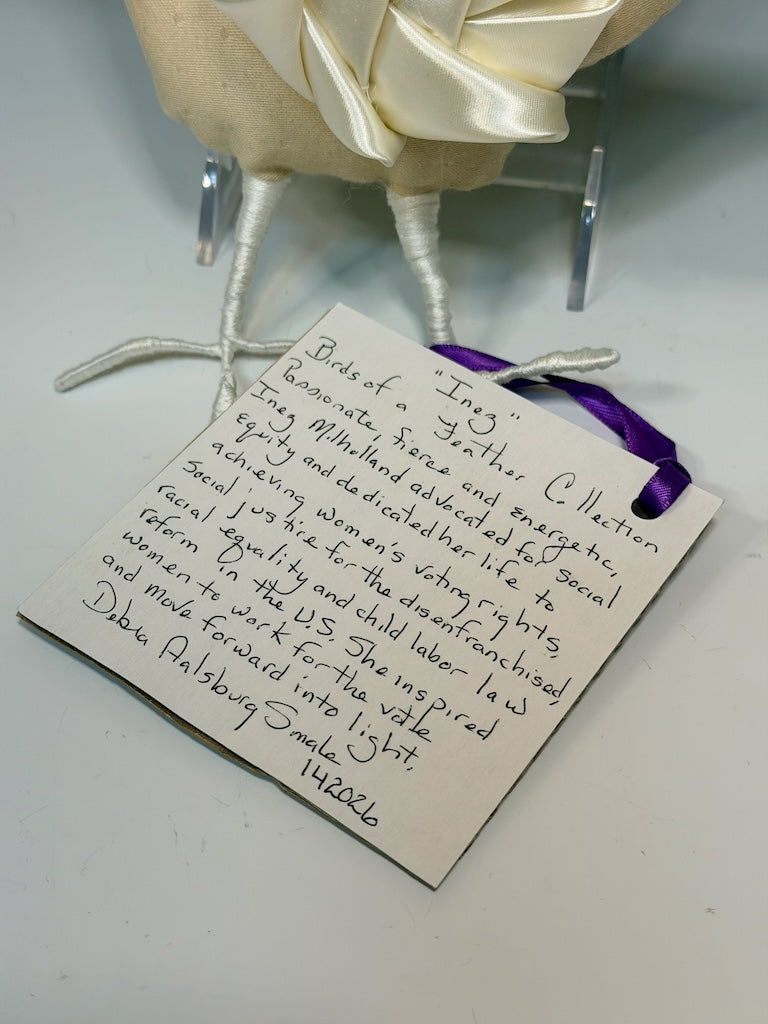 "Inez"
Birds of a Feather Collection
Passionate, fierce and energetic,
Inez Milholland advocated for social
equity and dedicated her life to
achieving women's voting rights,
social justice for the disenfranchised,
racial equality and child labor law
reform in the U.S. She inspired
women to work for the vote
and move forward into light.
Debra Aalsburg Smale
142026